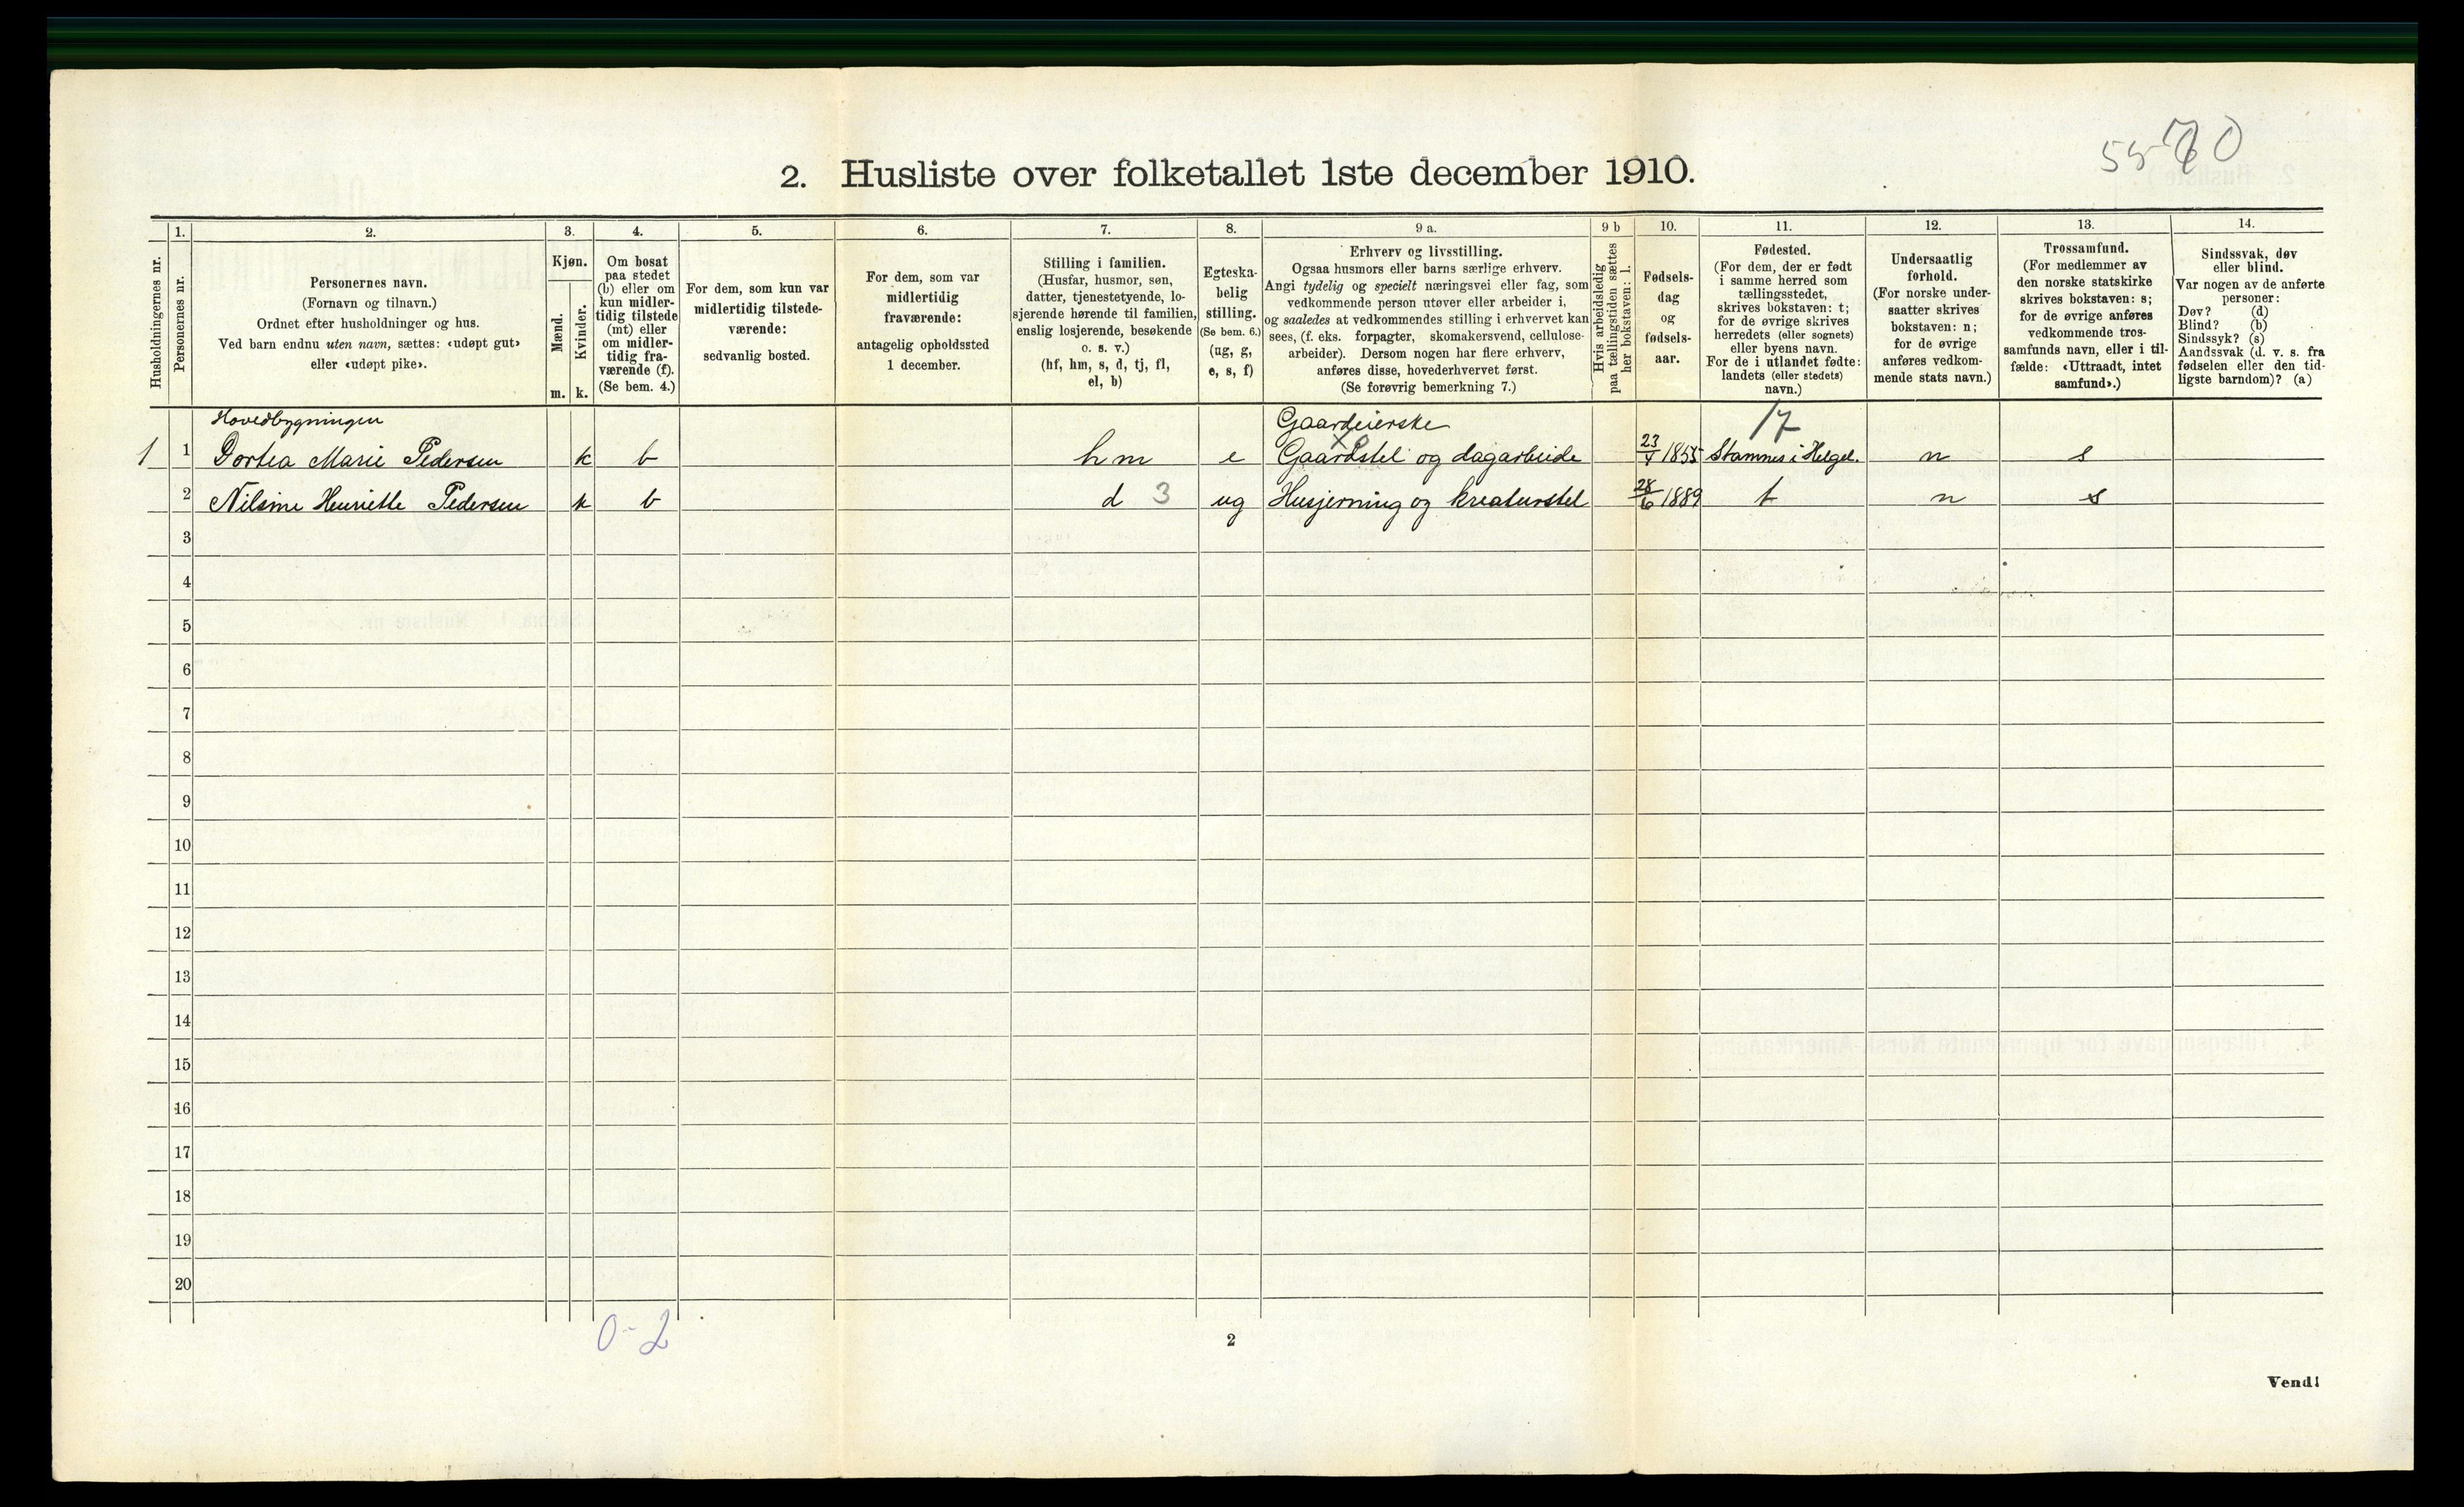 55-70
2. Husliste over folketallet 1ste december 1910.
Husholdningernes nr.
1.
Personernes nr.
2.
Personernes navn.
(Fornavn og tilnavn.)
Ordnet efter husholdninger og hus.
Ved barn endnu uten navn, sættes: «udøpt gut»
eller «udøpt pike».
3.
Kjøn.
Mænd.
Kvinder.
m. k.
4.
Om bosat
paa stedet
(b) eller om
kun midler-
tidig tilstede
(mt) eller
om midler-
tidig fra-
værende (f).
(Se bem. 4.)
5.
For dem, som kun var
midlertidig tilstede-
værende:
sedvanlig bosted.
6.
For dem, som var
midlertidig
fraværende:
antagelig opholdssted
1 december.
7.
Stilling i familien.
(Husfar, husmor, søn,
datter, tjenestetyende, lo-
sjerende hørende til familien,
enslig losjerende, besøkende
o. s. v.)
(hf, hm, s, d, tj, fl,
el, b)
8.
Egteska-
belig
stilling.
(Se bem. 6.)
(ug, g,
e, s, f)
9 a.
Erhverv og livsstilling.
Ogsaa husmors eller barns særlige erhverv.
Angi tydelig og specielt næringsvei eller fag, som
vedkommende person utøver eller arbeider i,
og saaledes at vedkommendes stilling i erhvervet kan
sees, (f. eks. forpagter, skomakersvend, cellulose-
arbeider). Dersom nogen har flere erhverv,
anføres disse, hovederhvervet først.
(Se forøvrig bemerkning 7.)
9 b
Hvis arbeidsledig
paa tællingstiden sættes
her bokstaven: l.
10.
Fødsels-
dag
og
fødsels-
aar.
11.
Fødested.
(For dem, der er født
i samme herred som
tællingsstedet,
skrives bokstaven: t;
for de øvrige skrives
herredets (eller sognets)
eller byens navn.
For de i utlandet fødte:
landets (eller stedets)
navn.)
12.
Undersaatlig
forhold.
(For norske under-
saatter skrives
bokstaven: n;
for de øvrige
anføres vedkom-
mende stats navn.)
13.
Trossamfund.
(For medlemmer av
den norske statskirke
skrives bokstaven: s;
for de øvrige anføres
vedkommende tros-
samfunds navn, eller i til-
fælde: «Uttraadt, intet
samfund».)
14.
Sindssvak, døv
eller blind.
Var nogen av de anførte
personer:
Døv? (d)
Blind? (b)
Sindssyk? (s)
Aandssvak (d. v. s. fra
fødselen eller den tid-
ligste barndom)? (a)
Hovedbygningen Gaardeierske 17
1 1 Dortea Marie Pedersen k b hm e Gaardstel og dagarbeide 23/4 1855 Stamnes i Helgel. n s
2 Nilsine Henriette Pedersen k b d 3 ug Husjerning og kreaturstel 28/6 1889 t n s
3
4
5
6
7
8
9
10
11
12
13
14
15
16
17
18
19
20
0-2
2
Vend!